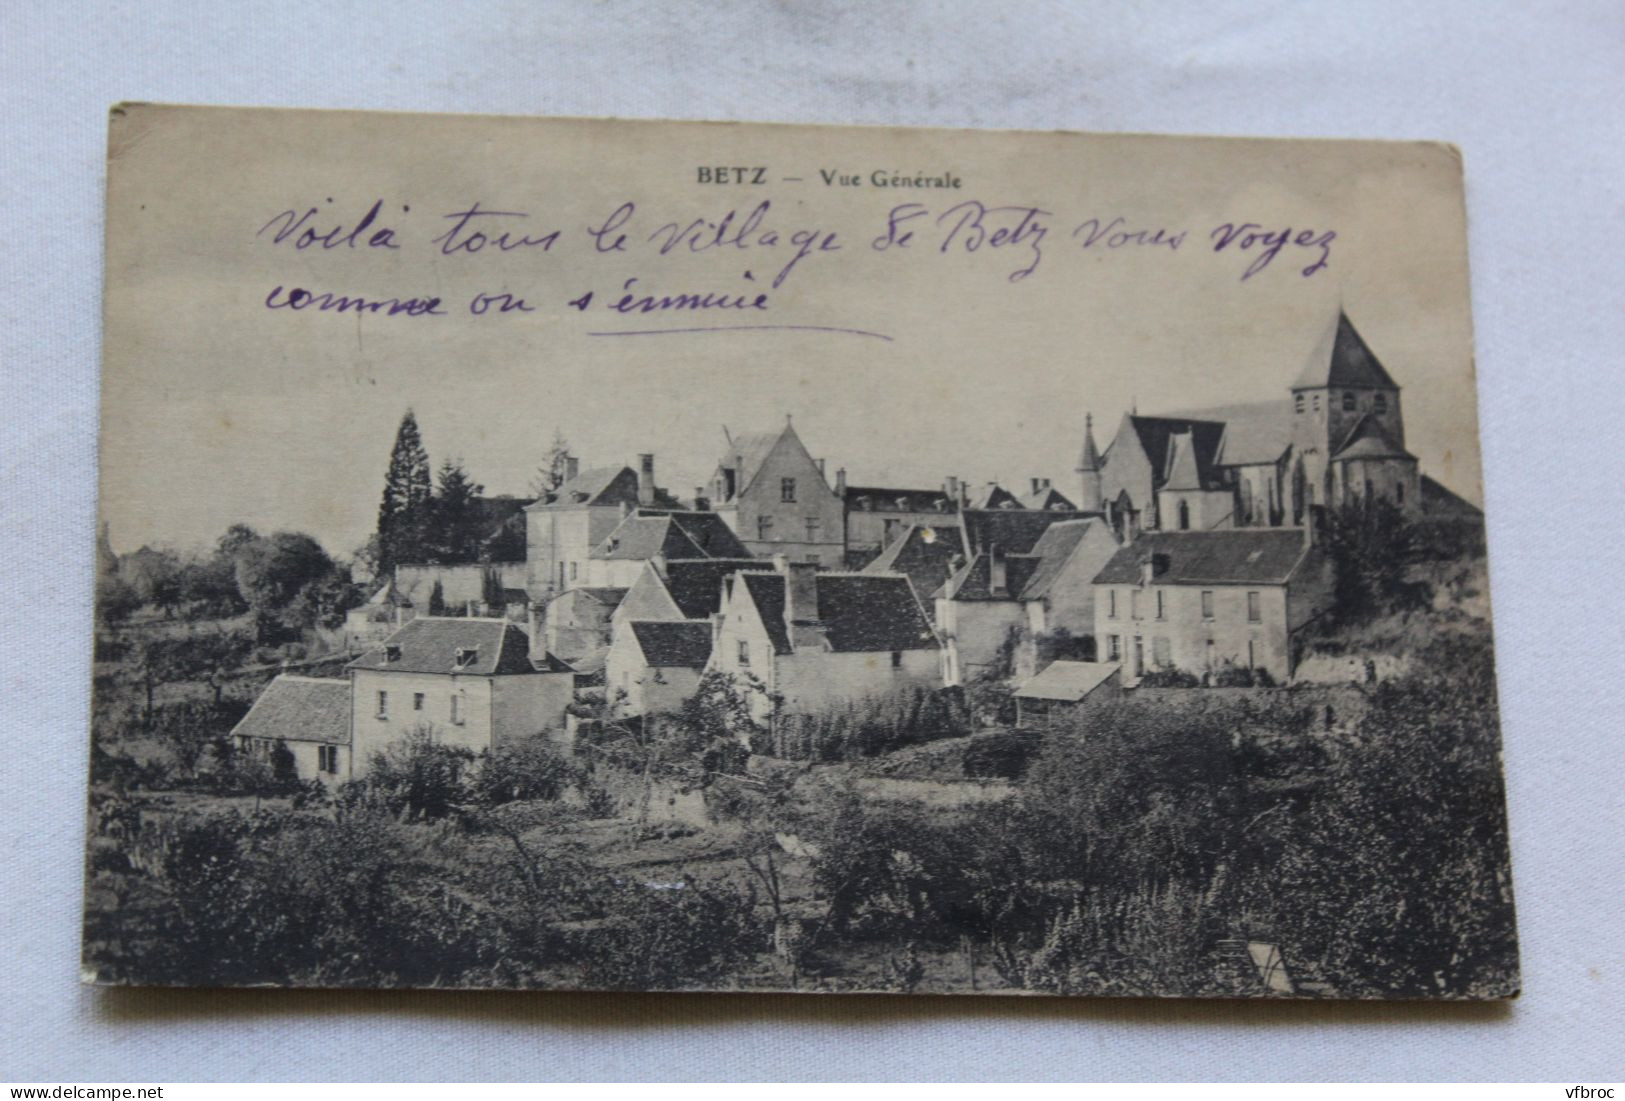 BETZ — Vue Générale
Voilà tous le village de Betz Vous voyez
comme on s'ennuie
delcampe.net
vfbroc